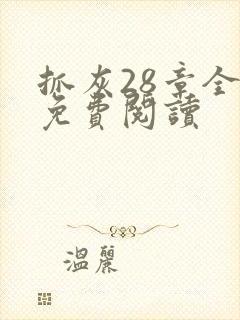 抓灰28章全
免費閱讀
溫麗